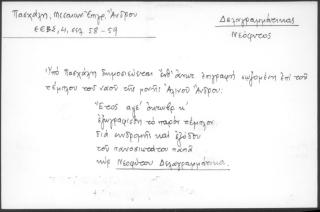 Πασχάλη, Μεσαιων. Επιγρ. Άνδρου
ΕΕΒΣ, 4, σελ. 58-59
Δελαγραμμάτικας
Νεόφυτος
Ὑπό Πασχάλη δημοσιεύεται ἐπιγραφή σωζομένη ἐπί τοῦ
τέμπλου τοῦ ναοῦ τῆς μονῆς Ἁγίου Ἄνδρου:
Ἔτος αχε' ὀκτωβρ κ'
ἐζωγραφίσθη τό παρόν τέμπλον
διά συνδρομῆς καί ἐξόδου
τοῦ πανοσιωτάτου παπᾶ
κύρ Νεοφύτου Δελαγραμμάτικα.